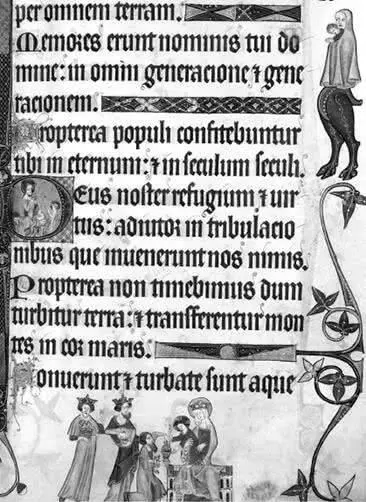 per omnem terram.
Memores erunt nominis tui do
mine: in omni generacione ⁊ gene
racionem.
Propterea populi confitebuntur
tibi in eternum: ⁊ in seculum seculi.
Deus noster refugium ⁊ uir
tus: adiutor in tribulacio
nibus que inuenerunt nos nimis.
Propterea non timebimus dum
turbitur terra: ⁊ transferentur mon
tes in cor maris.
Sonuerunt ⁊ turbate sunt aque